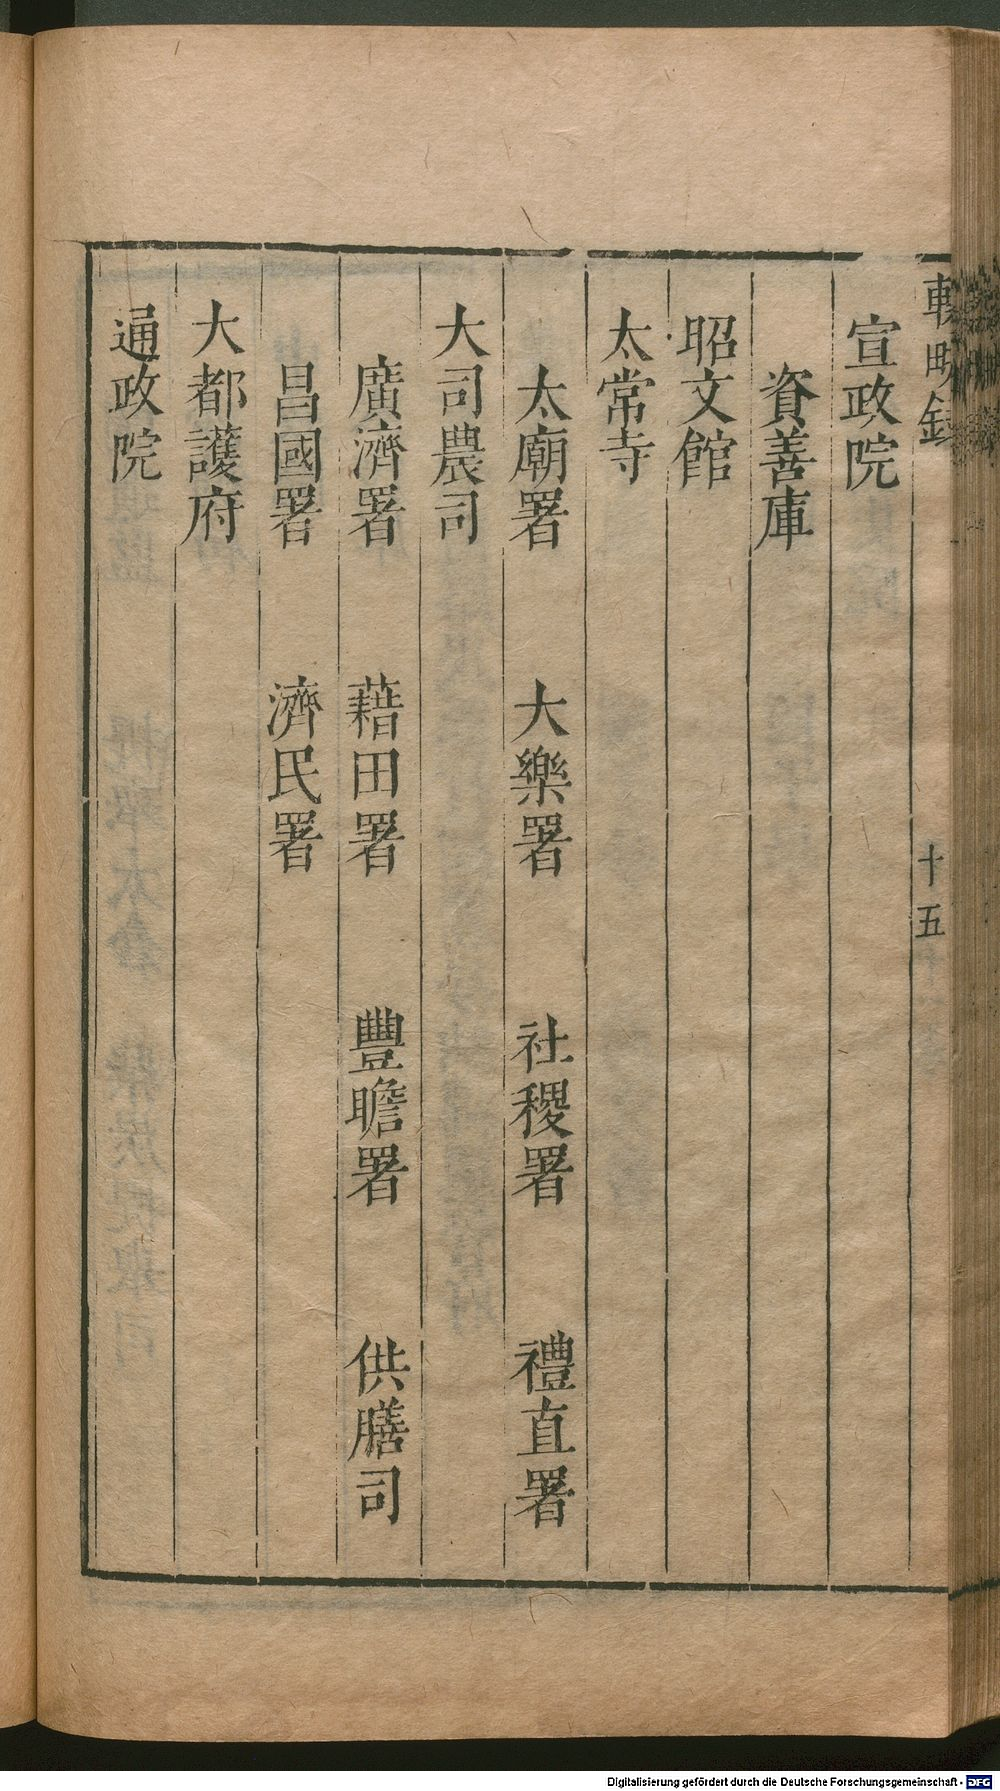 宣政院
資善庫
昭文館
太常寺
太廟署 大樂署 社稷署 禮直署
大司農司
廣濟署 藉田署 豐贍署 供膳司
昌國署 濟民署
大都護府
通政院
十五
Digitalisierung gefördert durch die Deutsche Forschungsgemeinschaft - DFG